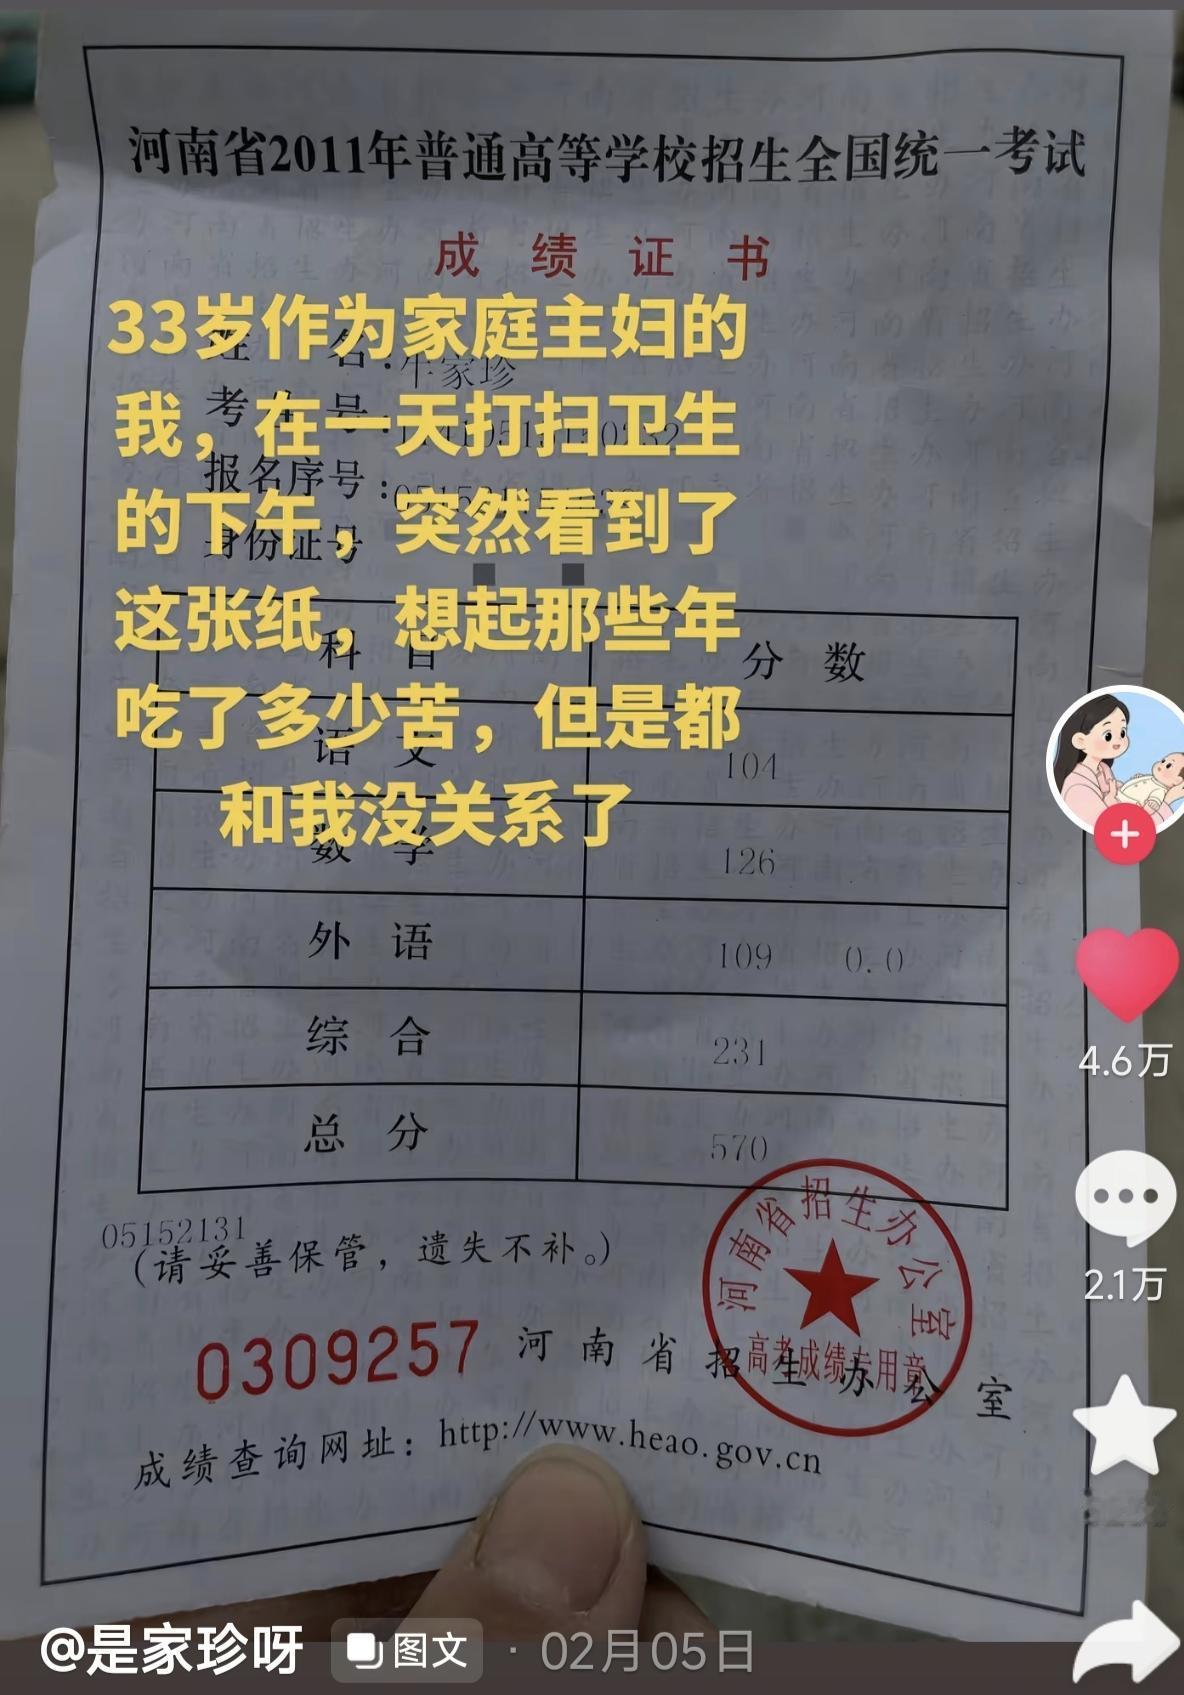 河南省2011年普通高等学校招生全国统一考试
成绩证书
33岁作为家庭主妇的
我，在一天打扫卫生
的下午，突然看到了
这张纸，想起那些年
吃了多少苦，但是都
和我没关系了
姓 名：牛家珍
考生号：
报名序号：
身份证号
科目 分数
语文 104
数学 126
外语 109 0.0
综合 231
总分 570
05152131
（请妥善保管，遗失不补。）
0309257 河南省招生办公室
河南省招生办公室
高考成绩专用章
成绩查询网址：http://www.heao.gov.cn
4.6万
2.1万
@是家珍呀 图文 · 02月05日